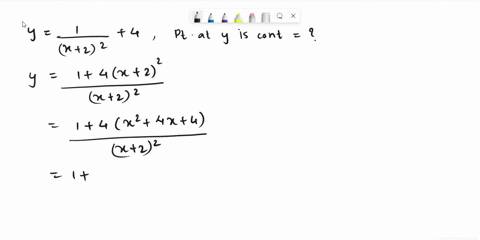 y = 1/(x+2)² + 4 , Pt. at y is cont = ?
y = (1 + 4(x+2)²)/(x+2)²
= (1 + 4(x² + 4x + 4))/(x+2)²
= 1+